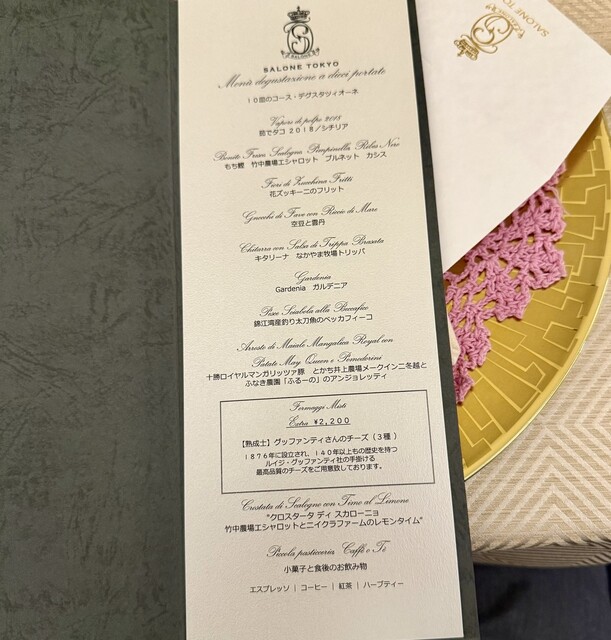 SALONE TOKYO
Menù degustazione a dieci portate
10皿のコース・デグスタツィオーネ
Vapore di polpo 2018
茹でタコ 2018／シチリア
Bonito Fresca Scalogna Pimpinella Ribes Nero
もち鰹 竹中農場エシャロット プルネット カシス
Fiori di Zucchina Fritti
花ズッキーニのフリット
Gnocchi di Fave con Riccio di Mare
空豆と雲丹
Chitarra con Salsa di Trippa Brasata
キタリーナ なかやま牧場トリッパ
Gardenia
Gardenia ガルデニア
Pesce Sciabola alla Beccafico
錦江湾産釣り太刀魚のベッカフィーコ
Arrosto di Maiale Mangalica Royal con
Patate May Queen e Pomodorini
十勝ロイヤルマンガリッツァ豚 とかち井上農場メークイン二冬越と
ふなき農園「ふるーの」のアンジョレッティ
Formaggi Misti
Extra ¥2,200
【熟成士】グッファンティさんのチーズ（3種）
1876年に設立され、140年以上もの歴史を持つ
ルイジ・グッファンティ社の手掛ける
最高品質のチーズをご用意致しております。
Crostata di Scalogno con Timo al Limone
"クロスタータ ディ スカローニョ
竹中農場エシャロットとニイクラファームのレモンタイム"
Piccola pasticceria Caffè o Tè
小菓子と食後のお飲み物
エスプレッソ | コーヒー | 紅茶 | ハーブティー
SALONE TO